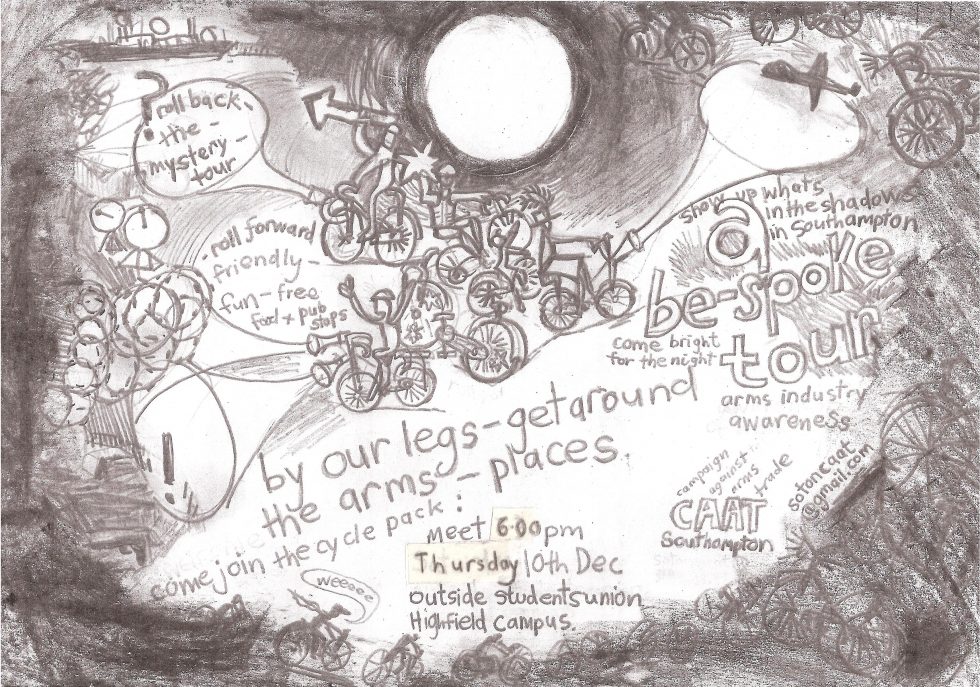 roll back -
- the -
mystery -
tour
- roll forward
friendly -
fun - free
food + pub
stops
!
show up whats
in the shadows
in Southampton
a
be-spoke
tour
come bright
for the night
arms industry
awareness
by our legs - get around
the arms - places.
come join the cycle pack :
Meet 6.00pm
Thursday 10th Dec
outside students union
Highfield campus.
campaign
against
arms
trade
CAAT
Southampton
sotoncaat
@gmail.com
weeeee